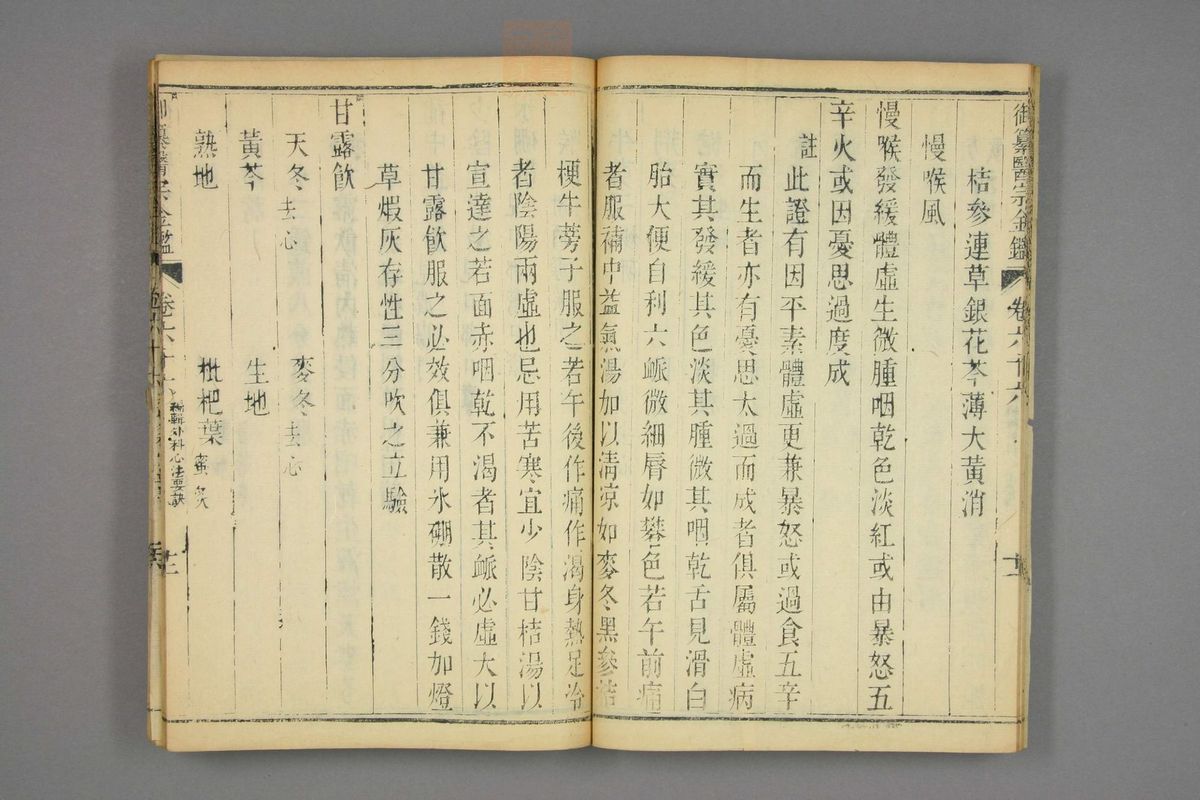 御纂醫宗金鑑 卷六十六
桔參連草銀花芩薄大黃消
慢喉風
慢喉發緩體虛生微腫咽乾色淡紅或由暴怒五
辛火或因憂思過度成
註此證有因平素體虛更兼暴怒或過食五辛
而生者亦有憂思太過而成者俱屬體虛病
實其發緩其色淡其腫微其咽乾舌見滑白
胎大便自利六䘑微細唇如礬色若午前痛
者服補中益氣湯加以清涼如麥冬黑參桔
梗牛蒡子服之若午後作痛作渴身熱足冷
者陰陽兩虛也忌用苦寒宜少陰甘桔湯以
宣達之若面赤咽乾不渴者其䘑必虛大以
甘露飲服之必效俱兼用氷硼散一錢加燈
草煆灰存性三分吹之立驗
甘露飲
天冬去心 麥冬去心
黃芩 生地
熟地 枇杷葉蜜炙
醫宗金鑑 卷六十 編輯外科心法要訣